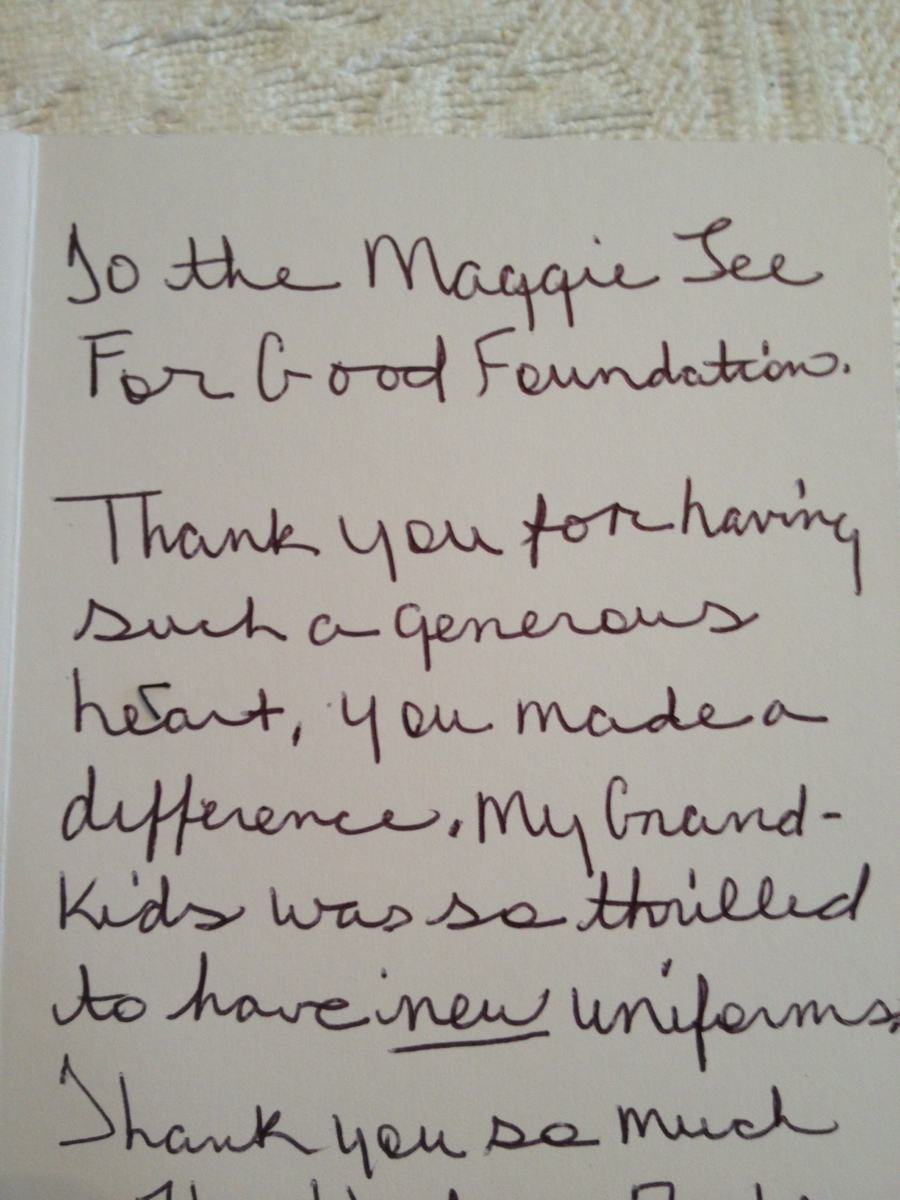 To the Maggie Lee
For Good Foundation.
Thank you for having
such a generous
heart, you made a
difference. My Grand-
Kids was so thrilled
to have new uniforms.
Thank you so much